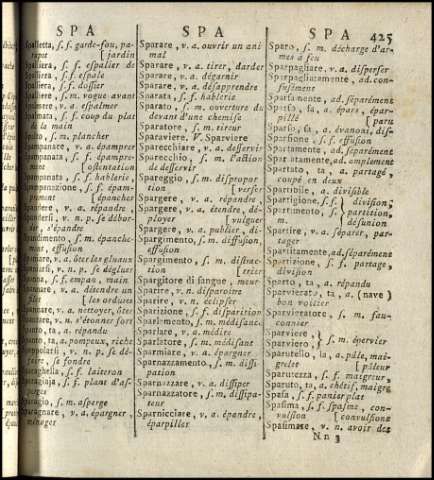 SPA
SPA
SPA 425
Spalletta, s. f. garde-fou, pa-
rapet [jardin
Spalliera, s. f. espalier de
Spalliera, s. f. espale
Spalliera, s. f. dossier
Spalliere, s. m. vogue avant
Spalmare, v. a. espalmer
Spalmata, s. f. coup du plat
de la main
s. m. plancher
Spampanare, v. a. épamprer
Spampanata, s. f. épampre-
ment [ostentation
Spampanata, s. f. hablerie,
Spampanazione, s. f. épam-
prement [épancher
Spandere, v. a. répandre,
Spandersi, v. n. p. se débor-
der, s'épandre
Spandimento, s. m. épanche-
ment, effusion
Spaniare, v. a. ôter les gluaux
Spaniarsi, v. n. p. se dégluer
Spanna, s. f. empan, main
v. a. détendre un
filet [les ordures
v. a. nettoyer, ôter
v. n. s'étonner fort
Spanto, ta, a. répandu
Spanto, ta, a. pompeux, riche
v. n. p. se dé-
faire, se fondre
s. f. laiteron
Sparagiaja, s. f. plant d'as-
perges
Sparagio, s. m. asperge
Sparagnare, v. a. épargner,
ménager
Sparare, v. a. ouvrir un ani
mal
Sparare, v. a. tirer, darder
Sparare, v. a. dégarnir
Sparare, v. a. désapprendre
Sparata, s. f. hablerie
Sparato, s. m. ouverture du
devant d'une chemise
Sparatore, s. m. tireur
Sparaviere. V. Sparviere
Sparecchiare, v. a. desservir
Sparecchio, s. m. l'action
de desservir
Spareggio, s. m. dispropor
tion [verser
Spargere, v. a. répandre,
Spargere, v. a. étendre, dé-
ployer [vulguer
Spargere, v. a. publier, di-
Spargimento, s. m. diffusion,
effusion
Spargimento, s. m. distrac-
tion [trier
Spargitore di sangue, meur
Sparire, v. n. disparoître
Sparire, v. n. éclipser
Sparizione, s. f. disparition
Sparlamento, s. m. médisanc.
Sparlare, v. a. médire
Sparlatore, s. m. médisant
Sparmiare, v. a. épargner
Sparnazzamento, s. m. dissi
pation
Sparnazzare, v. a. dissiper
Sparnazzatore, s. m. dissipa-
teur
Sparnicciare, v. a. épandre,
éparpiller
Sparo, s. m. décharge d'ar-
mes à feu
Sparpagliare, v. a. disperser
Sparpagliatamente, ad. con-
fusément
Sparsamente, ad. séparément
Sparso, sa, a. épars, épar-
pillé [paru
Sparso, sa, a. évanoui, dis-
Sparsione, s. f. effusion
Spartamente, ad. séparément
Spartatamente, ad. amplement
Spartato, ta, a. partagé,
coupé en deux
Spartibile, a. divisible
Spartigione, s. f. } division,
Spartimento, s. } partition,
m. } desunion
Spartire, v. a. séparer, par-
tager
Spartitamente, ad. séparément
Spartizione, s. f. partage,
division
Sparto, ta, a. répandu
Sparvierato, ta, a. (nave)
bon voilier
Sparvieratore, s. m. fau-
conner
Sparviere }
Sparviero } s. m. épervier
Sparutello, la, a. pâle, mai-
grelet [pâleur
Sparutezza, s. f. maigreur,
Sparuto, ta, a. chétif, maigre
Spasa, s. f. panier plat
Spasima, s. f. spasme, con-
vulsion [convulsions
Spasimare, v. n. avoir des
N n 3